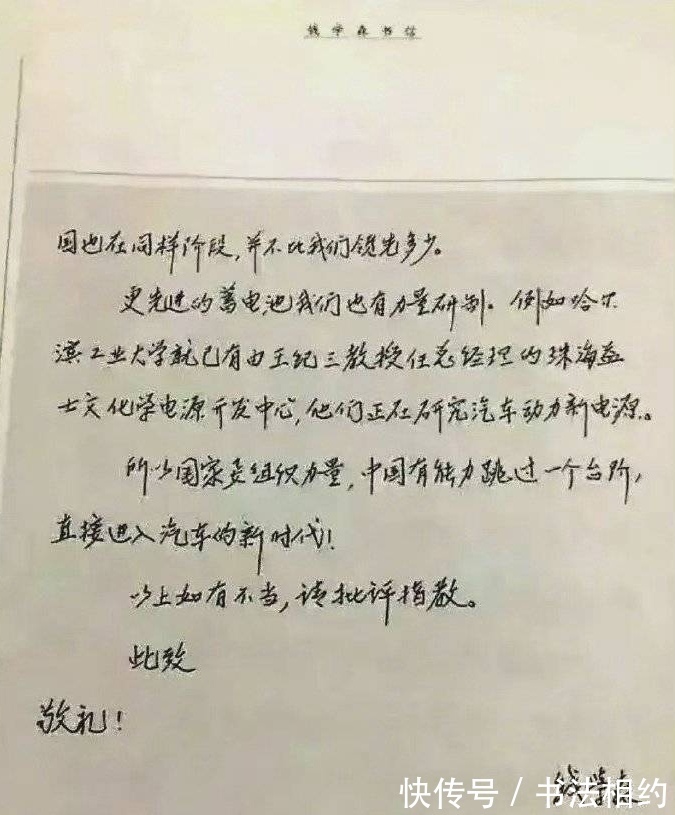 钱学森书信
国也在同样阶段,并不比我们领先多少。
更先进的蓄电池我们也有力量研制。例如哈尔
滨工业大学就已有由王纪三教授任总经理的珠海益
士文化学电源开发中心,他们正在研究汽车动力新电源。
所以国家要组织力量,中国有能力跳过一个台阶,
直接进入汽车的新时代!
以上如有不当,请批评指教。
此致
敬礼!
钱学森
快传号/书法相约